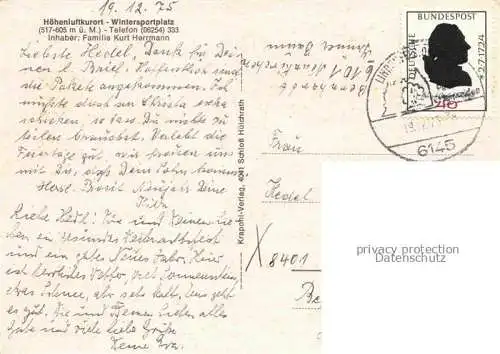 19.12.75
Höhenluftkurort - Wintersportplatz
(517-605 m ü. M.) - Telefon (06254) 333
Inhaber: Familie Kurt Herrmann
Liebste Hedel, Dank für Dei-
nen l. Brief. Hoffentlich sind
die Pakete angekommen. Ich
mußte doch an Christa
schicken, so dass Du nichts zu
teilen brauchst. Verlebt die
Feiertage gut, wir freuen uns
mit Dir, daß Dein Sohn kommt.
Herzl. Prosit Neujahr Deine
Liebe Hedl! Dir und Deinen Lie-
ben ein gesundes Weihnachtsfest
und ein gutes Neues Jahr. Hier
ist herrliches Wetter, viel Sonnenschein
etwas Schnee, aber sehr kalt. Uns geht
es gut. Dir und Deinen Lieben alles
Gute und viele liebe Grüße
Deine
Krapohl-Verlag, 4041 Schloß Hülchrath
DEUTSCHE
BUNDESPOST
40
6145
6101
Frau
Hedel
8401
privacy protection
Datenschutz